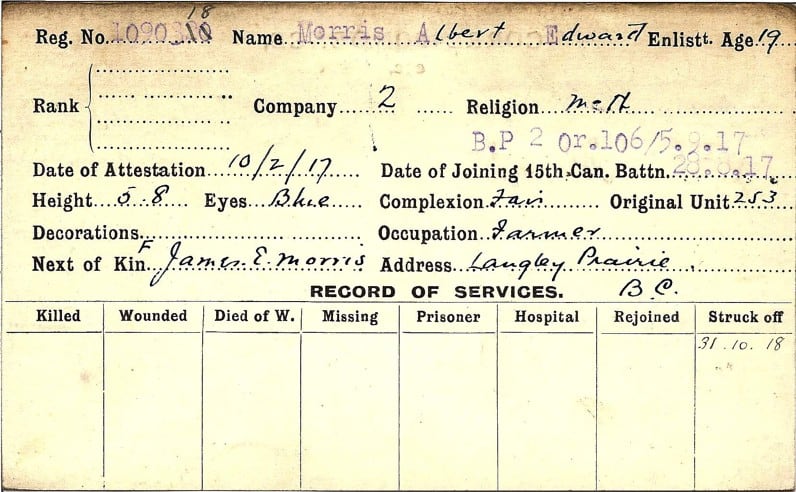 18
Reg. No. 1090310 Name Morris Albert Edward Enlistt. Age 19
Rank Company 2 Religion Meth
B.P 2 Or.106/5.9.17
Date of Attestation 10/2/17 Date of Joining 15th Can. Battn. 28.8.17
Height 5.8 Eyes Blue Complexion Fair Original Unit 253
Decorations Occupation Farmer
Next of Kin F James E. Morris Address Langley Prairie
RECORD OF SERVICES. B.C.
Killed Wounded Died of W. Missing Prisoner Hospital Rejoined Struck off
31.10.18